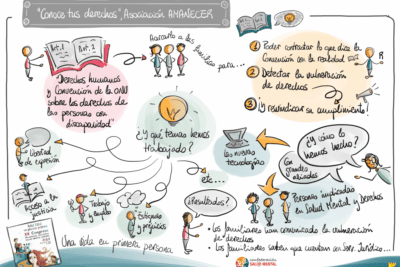 "Conoce tus derechos", Asociación AMANECER
Art. 1
Art. 2
Acercarlo a las familias
para...
Derechos humanos
y Convención de la ONU
sobre los derechos de
las personas con
discapacidad
1 Poder contrastar lo que dice la
Convención con la realidad
2 Detectar la vulneración
de derechos
3 ¡Y reivindicar su cumplimiento!
¿Y qué temas hemos
trabajado?
Libertad
de expresión
Acceso a la
justicia
Trabajo
y empleo
Estigma y
prejuicios
Las nuevas
tecnologías
etc...
¿Y cómo lo
hemos hecho?
Con
grandes
aliados
Personas implicadas
en Salud Mental y Derechos
¿Resultados?
• Los familiares han comunicado la vulneración
de derechos
• Los familiares saben que cuentan con Serv. Jurídico...
Una vida en primera persona
SALUD MENTAL